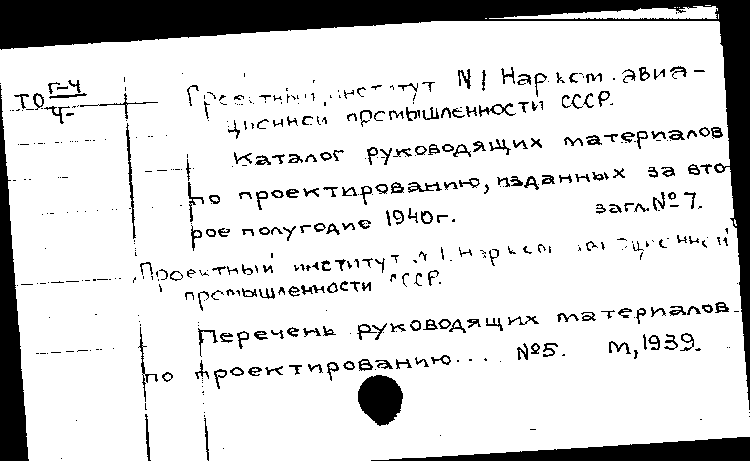 ТО Г-4/4-
Проектный институт №1 Нарком. авиа-
ционной промышленности СССР.
Каталог руководящих материалов
по проектированию, изданных за вто
рое полугодие 1940г. загл. №7.
Проектный институт №1. Нарком авиационной
промышленности СССР.
Перечень руководящих материалов
по проектированию.... №5. М, 1939.